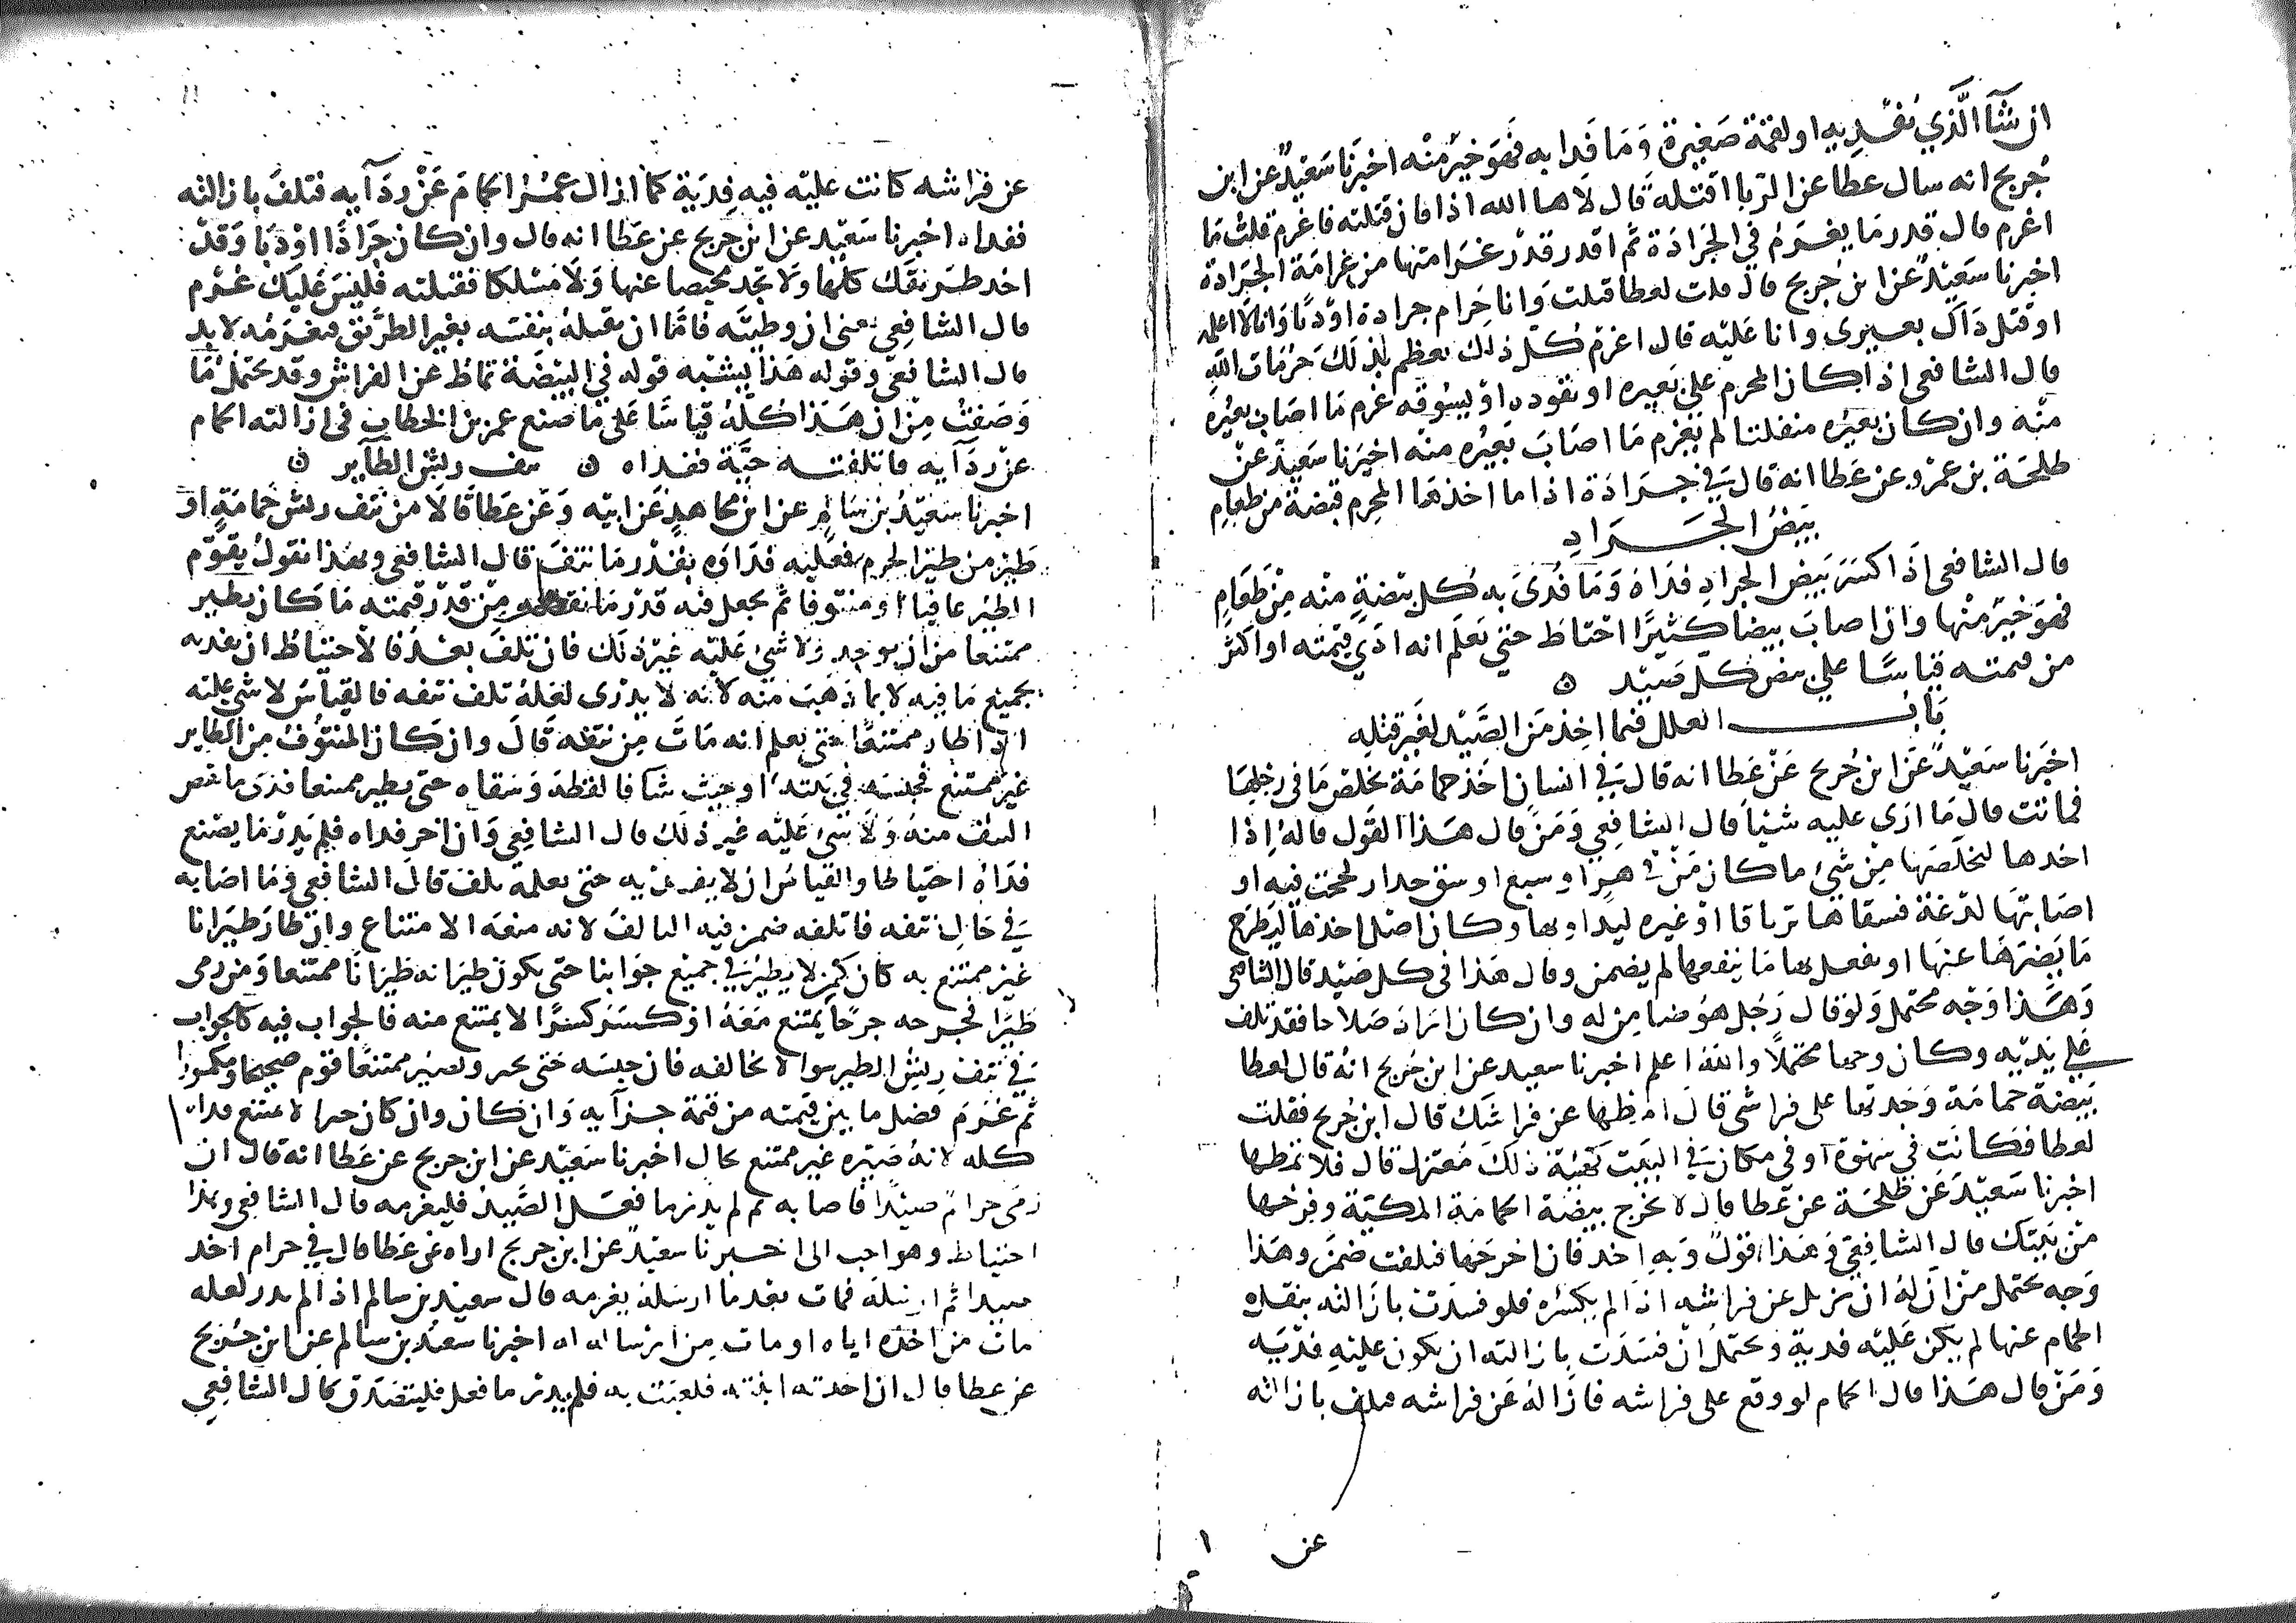 ان شآ الذي نفديه او لقمة صغيرة وما فدا به فهو خير منه اخبرنا سعيد عن ابن
جريج انه سال عطا عن الدبا اقتله قال لا ها الله اذا فان قتلته فاغرم قلت ما
اغرم قال قدر ما يغرم في الجرادة ثم اقدر قدر غرامتها من غرامة الجرادة
اخبرنا سعيد عن ابن جريج قال قلت لعطا قتلت وانا حرام جرادة او دبا وانا لا اعلمه
او قتل ذاك بعيرى وانا عليه قال اغرم كل ذلك تعظم بذلك حرمات الله
قال الشافعي اذا كان المحرم على بعيره او يقوده او يسوقه غرم ما اصاب بعيره
منه وان كان بعيره منفلتا لم يغرم ما اصاب بعيره منه اخبرنا سعيد عن
طلحة بن عمرو عن عطا انه قال في جرادة اذا ما اخذها المحرم قبضة من طعام
بيض الجراد
قال الشافعي اذا كسر بيض الجراد فداه وما فدى به كل بيضة منه من طعام
فهو خير منها وان اصاب بيضا كثيرا احتاط حتى يعلم انه ادى قيمته او اكثر
من قيمته قياسا علي بيض كل صيد ن
باب العلل فيما اخذ من الصيد لغير قتله
اخبرنا سعيد عن ابن جريج عن عطا انه قال في انسان اخذ حمامة يخلص ما في رجلها
فماتت قال ما ارى عليه شيئا قال الشافعي ومن قال هذا القول قاله اذا
اخذها ليخلصها من شي ما كان من في هر او سبع او شق جدار لحجت فيه او
اصابتها لدغة فسقاها ترياقا او غيره ليداويها وكان اصل اخذها ليطرح
ما يضرها عنها او يفعل بها ما ينفعها لم يضمن وقال هذا في كل صيد قال الشافعي
وهذا وجه محتمل ولو قال رجل هو ضامن له وان كان اراد صلاحا فقد تلف
علي يديه وكان وجها محتملا والله اعلم اخبرنا سعيد عن ابن جريج انه قال لعطا
بيضة حمامة وجدتها على فراشي قال امطها عن فراشك قال ابن جريج فقلت
لعطا فكانت في سهوة او في مكان في البيت كهيئة ذلك معتزل قال فلا تمطها
اخبرنا سعيد عن طلحة عن عطا قال لا تخرج بيضة الحمامة المكية وفرخها
من بيتك قال الشافعي وهذا قول وبه اخذ فان اخرجها فتلفت ضمن وهذا
وجه يحتمل من ان له ان يزيل عن فراشه اذا لم يكسره فلو فسدت بازالته بنقله
الحمام عنها لم يكن عليه فدية ويحتمل ان فسدت بازالته ان يكون عليه فديه
ومن قال هذا قال الحمام لو وقع على فراشه فازاله عن فراشه فتلف بازالته
عن
عن فراشه كانت عليه فيه فدية كما ازال عمر الحمام عن ردآيه فتلف بازالته
ففداه اخبرنا سعيد عن ابن جريج عن عطا انه قال وان كان جرادا او دبا وقد
اخذ طريقك كلها ولا تجد محيصا عنها ولا مسلكا فقتلته فليس عليك غرم
قال الشافعي يعني ان وطيته فاما ان يقتله بنفسه بغير الطريق فيغرمه لا بد
قال الشافعي وقوله هذا يشبه قوله في البيضة تماط عن الفراش وقد يحتمل ما
وصفت من ان هذا كله قياسا على ما صنع عمر بن الخطاب في ازالته الحمام
عن ردآيه فاتلفته حية ففداه ن نتف ريش الطآير ن
اخبرنا سعيد بن سالم عن ابن مجاهد عن ابيه وعن عطا قالا من نتف ريش حمامة او
طير من طير الحرم فعليه فداؤه بقدر ما نتف قال الشافعي وبهذا نقول يقوم
الطير عافيا او منتوفا ثم يجعل فيه قدر ما نقصه من قدر قيمته ما كان يطير
ممتنعا من ان يوخذ ولا شي عليه غير ذلك فان تلف بعد فالاحتياط ان يفديه
بجميع ما فيه لا بما ذهب منه لانه لا يدرى لعله تلف نتفه فالقياس لا شي عليه
اذا طار ممتنعا حتى يعلم انه مات من نتفه قال وان كان المنتوف من الطاير
غير ممتنع فحبسه في بيته او حيث شا فالقطه وسقاه حتى يطير ممتنعا فدى ما نقص
النتف منه ولا شي عليه غير ذلك قال الشافعي وان اخر فداه فلم يدر ما يصنع
فداه احتياطا والقياس ان لا يفديه حتى يعلمه تلف قال الشافعي وما اصابه
في حال نتفه فاتلفه ضمن فيه التالف لانه منعه الامتناع وان طار طيرانا
غير ممتنع به كان كمن لا يطير في جميع جوابنا حتى يكون طيرانه طيرانا ممتنعا ومن رمى
طيرا فجرحه جرحا يمتنع معه او كسره كسرا لا يمتنع منه فالجواب فيه كالجواب
في نتف ريش الطير سوا لا يخالفه فان حبسه حتى يجبر ويصير ممتنعا قوم صحيحا ومكسورا
ثم غرم فضل ما بين قيمته من قيمة جزآيه وان كان وان كان جبرا لا يمتنع فداه
كله لانه صيره غير ممتنع بحال اخبرنا سعيد عن ابن جريج عن عطا انه قال ان
رمى حرام صيدا فاصابه ثم لم يدر ما فعل الصيد فليغرمه قال الشافعي وهذا
احتياط وهو احب الى اخبرنا سعيد عن ابن جريج اراه عن عطا قال في حرام اخذ
صيدا ثم ارسله فمات بعد ما ارسله يغرمه قال سعيد بن سالم اذا لم يدر لعله
مات من اخذه اياه او مات من ارساله له اخبرنا سعيد بن سالم عن ابن جريج
عن عطا قال ان اخذته ابنته فلعبت به فلم يدر ما فعل فليتصدق قال الشافعي